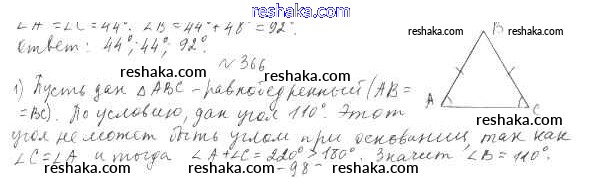 reshaka.com
∠A = ∠C = 44°. ∠B = 44° + 48° = 92°.
Ответ: 44°; 44°; 92°.
reshaka.com
№ 366
B
reshaka.com
1) Пусть дан △ABC - равнобедренный (AB =
reshaka.com
= BC). По условию, дан угол 110°. Этот
A C
угол не может быть углом при основании, так как
reshaka.com
∠C = ∠A и тогда ∠A + ∠C = 220° > 180°. Значит ∠B = 110°.
- 98 -
reshaka.com